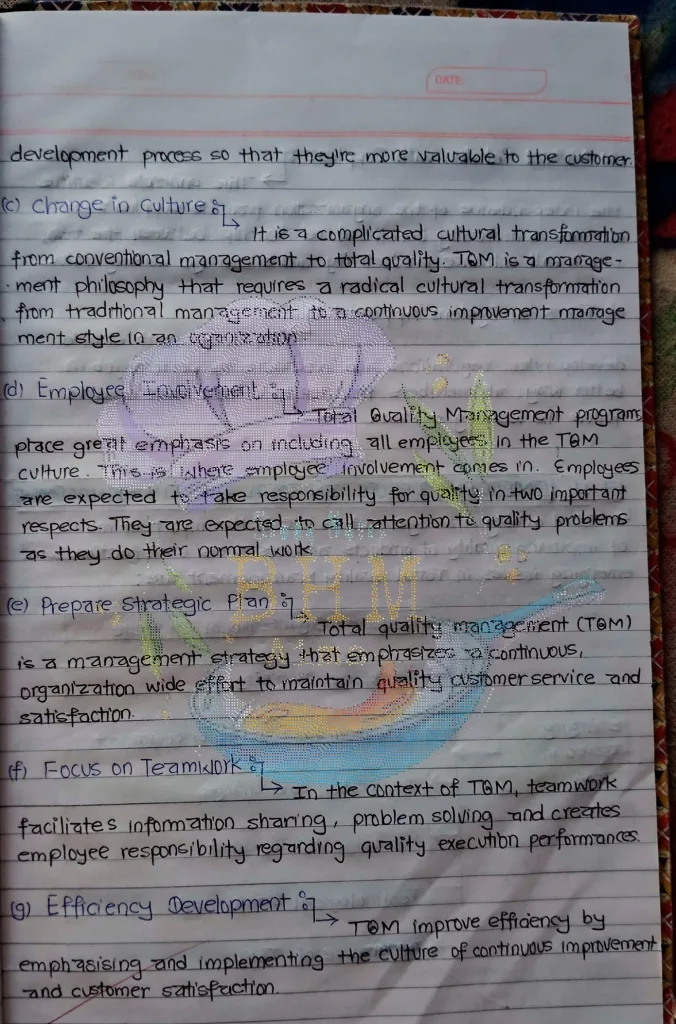 DATE:
development process so that they're more valuable to the customer.
(c) Change in Culture :-
It is a complicated cultural transformation
from conventional management to total quality. TQM is a manage-
-ment philosophy that requires a radical cultural transformation
from traditional management to a continuous improvement manage
ment style in an organization
(d) Employee Involvement :-
Total Quality Management program
place great emphasis on including all employees in the TQM
culture. This is where employee involvement comes in. Employees
are expected to take responsibility for quality in two important
respects. They are expected to call attention to quality problems
as they do their normal work
BHM
(e) Prepare Strategic Plan :-
Total quality management (TQM)
is a management strategy that emphasizes a continuous,
organization wide effort to maintain quality customer service and
satisfaction.
(f) Focus on Teamwork :-
In the context of TQM, teamwork
faciliates information sharing, problem solving and creates
employee responsibility regarding quality execution performances.
(g) Efficiency Development :-
TQM improve efficiency by
emphasising and implementing the culture of continuous improvement
and customer satisfaction.